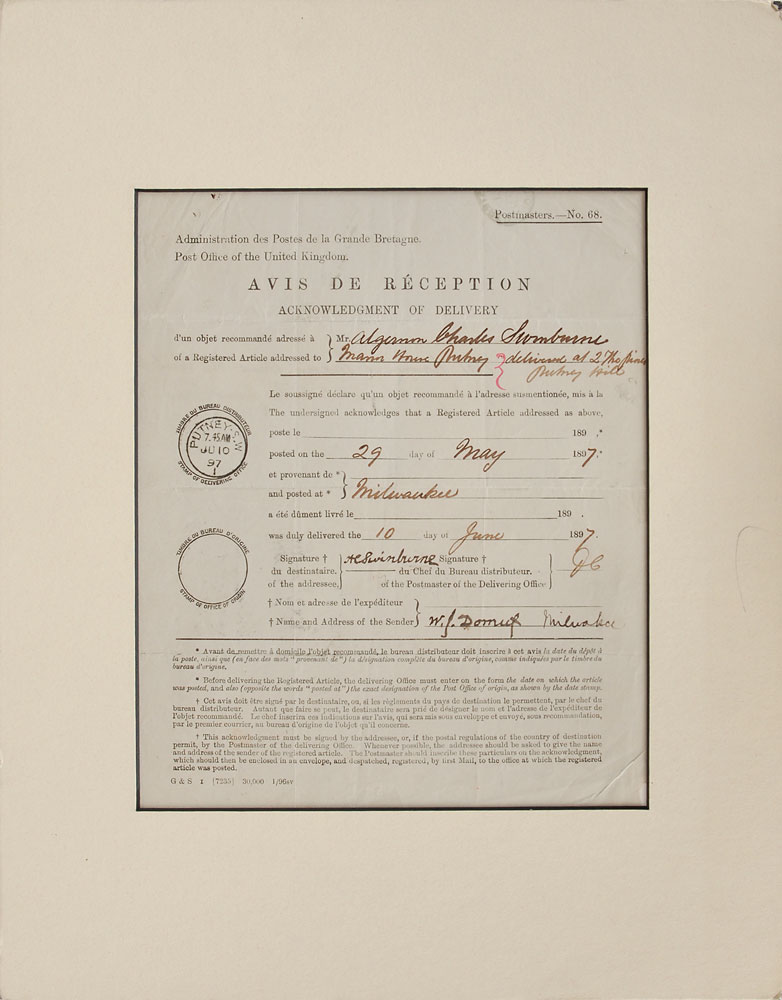 Postmasters.—No. 68.
Administration des Postes de la Grande Bretagne.
Post Office of the United Kingdom.
AVIS DE RÉCEPTION
ACKNOWLEDGMENT OF DELIVERY
d'un objet recommandé adressé à } Mr. Algernon Charles Swinburne
of a Registered Article addressed to } Manor House Putney } delivered at 2 The Pines
Putney Hill
Le soussigné déclare qu'un objet recommandé à l'adresse susmentionée, mis à la
The undersigned acknowledges that a Registered Article addressed as above,
poste le 189 .*
posted on the 29 day of May 1897.*
et provenant de * }
and posted at * } Milwaukee
a été dûment livré le 189 .
was duly delivered the 10 day of June 1897.
TIMBRE DU BUREAU DISTRIBUTEUR
PUTNEY S.W
7.45AM
JU 10
97
1
STAMP OF DELIVERING OFFICE
TIMBRE DU BUREAU D'ORIGINE
STAMP OF OFFICE OF ORIGIN
Signature † } ACSwinburne Signature †
du destinataire. du Chef du Bureau distributeur.
of the addressee, of the Postmaster of the Delivering Office
† Nom et adresse de l'expéditeur }
† Name and Address of the Sender } W. J. Milwakee
* Avant de remettre à domicile l'objet recommandé, le bureau distributeur doit inscrire à cet avis la date du dépôt à
la poste, ainsi que (en face des mots "provenant de") la désignation complète du bureau d'origine, comme indiquées par le timbre du
bureau d'origine.
* Before delivering the Registered Article, the delivering Office must enter on the form the date on which the article
was posted, and also (opposite the words "posted at") the exact designation of the Post Office of origin, as shown by the date stamp.
† Cet avis doit être signé par le destinataire, ou, si les règlements du pays de destination le permettent, par le chef du
bureau distributeur. Autant que faire se peut, le destinataire sera prié de désigner le nom et l'adresse de l'expéditeur de
l'objet recommandé. Le chef inscrira ces indications sur l'avis, qui sera mis sous enveloppe et envoyé, sous recommandation,
par le premier courrier, au bureau d'origine de l'objet qu'il concerne.
† This acknowledgment must be signed by the addressee, or, if the postal regulations of the country of destination
permit, by the Postmaster of the delivering Office. Whenever possible, the addressee should be asked to give the name
and address of the sender of the registered article. The Postmaster should insert these particulars on the acknowledgment,
which should then be enclosed in an envelope, and despatched, registered, by first Mail, to the office at which the registered
article was posted.
G & S 1 [7235] 30,000 1/96sv